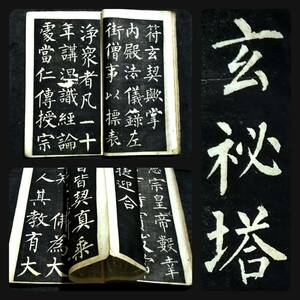 符玄契歟掌
内殿法儀錄左
街僧事以摽表
淨衆者凡一十
年講涅識經論
處當仁傳授宗
宗皇帝數幸
捷迎合
皆契真乘
佛為大
人其教有大
玄祕塔